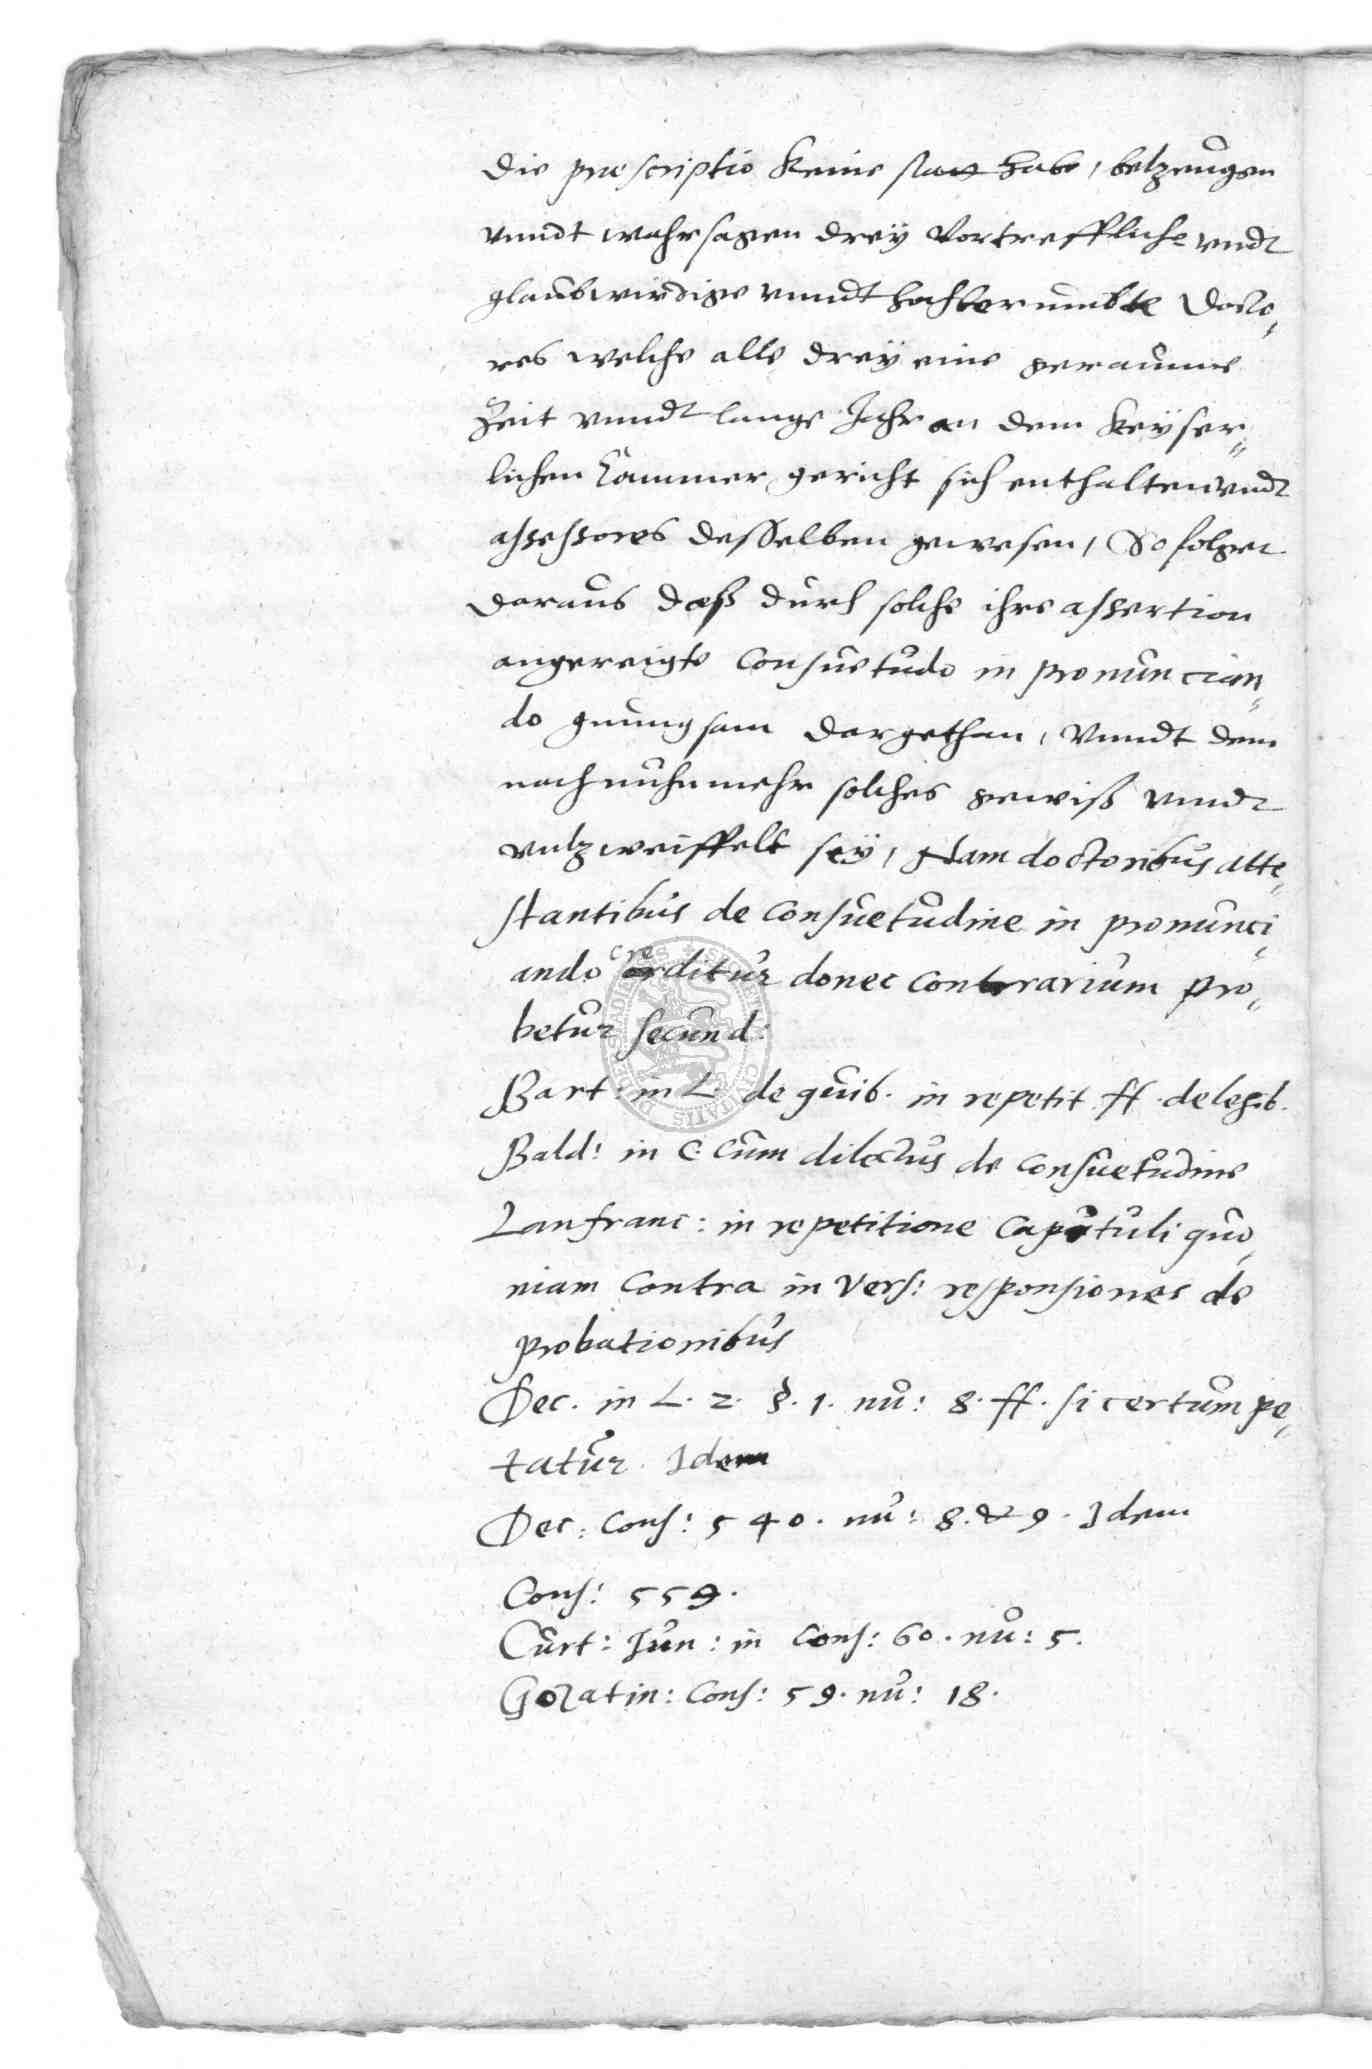 die praescriptio keine statt habe, betzeugen
vnndt wahrsagen dreÿ vortreffliche vndt
glaubwirdige vnndt hochberumbte Docto¬
res welche alle dreÿ eine geraume
Zeit vnndt lange Jahr an dem Keÿser¬
lichen Cammer gericht sich enthalten vndt
assessores desselben gewesen, So folget
daraus daß durch solche ihre assertion
angereigte Consuetudo in pronuncian¬
do gnungsam dargethan, Vnndt dem
nach nuhnmehr solches gewiß vnndt
vntzweiffelt seÿ, Nam doctoribus atte¬
stantibus de Consuetudine in pronunci¬
ando creditur donec contrarium pro¬
betur secund:
Bart: in L. de quib. in repetit ff. de legib.
Bald: in C. Cum dilectus de Consuetudine
Lanfranc: in repetitione Capituli quo¬
niam Contra in Vers: responsiones de
probationibus
Dec. in L. 2. §. 1. nu: 8. ff. si certum pe¬
tatur. Idem
Dec: Cons: 540. nu: 8. & 9. Idem
Cons: 559.
Curt: Jun: in Cons: 60. nu: 5.
Gozatin: Cons: 59. nu: 18.